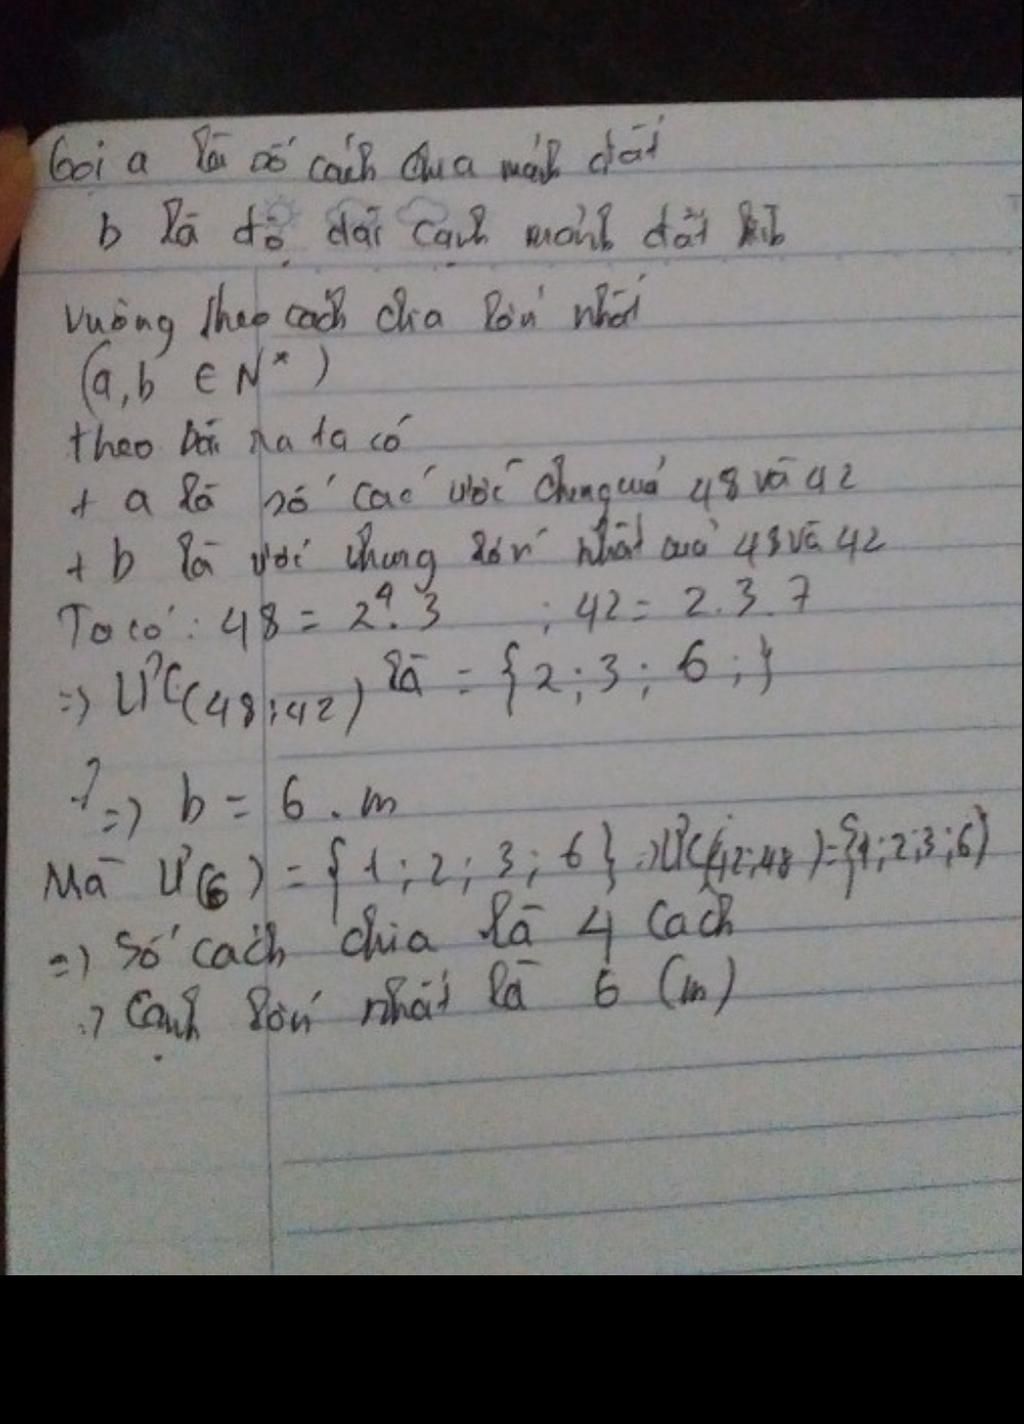 Gọi a là số cách chia mảnh đất
b là độ dài cạnh mảnh đất
vuông theo cách chia lớn nhất
(a,b ∈ N*)
theo bài ra ta có
+ a là số các ước chung của 48 và 42
+ b là ước chung lớn nhất của 48 và 42
Ta có: 48 = 2⁴.3 ; 42 = 2.3.7
=> ƯC(48;42) là = {2;3;6;}
=> b = 6.m
Mà Ư(6) = {1;2;3;6} => ƯC(42;48) = {1;2;3;6}
=> Số cách chia là 4 cách
=> Cạnh lớn nhất là 6 (m)